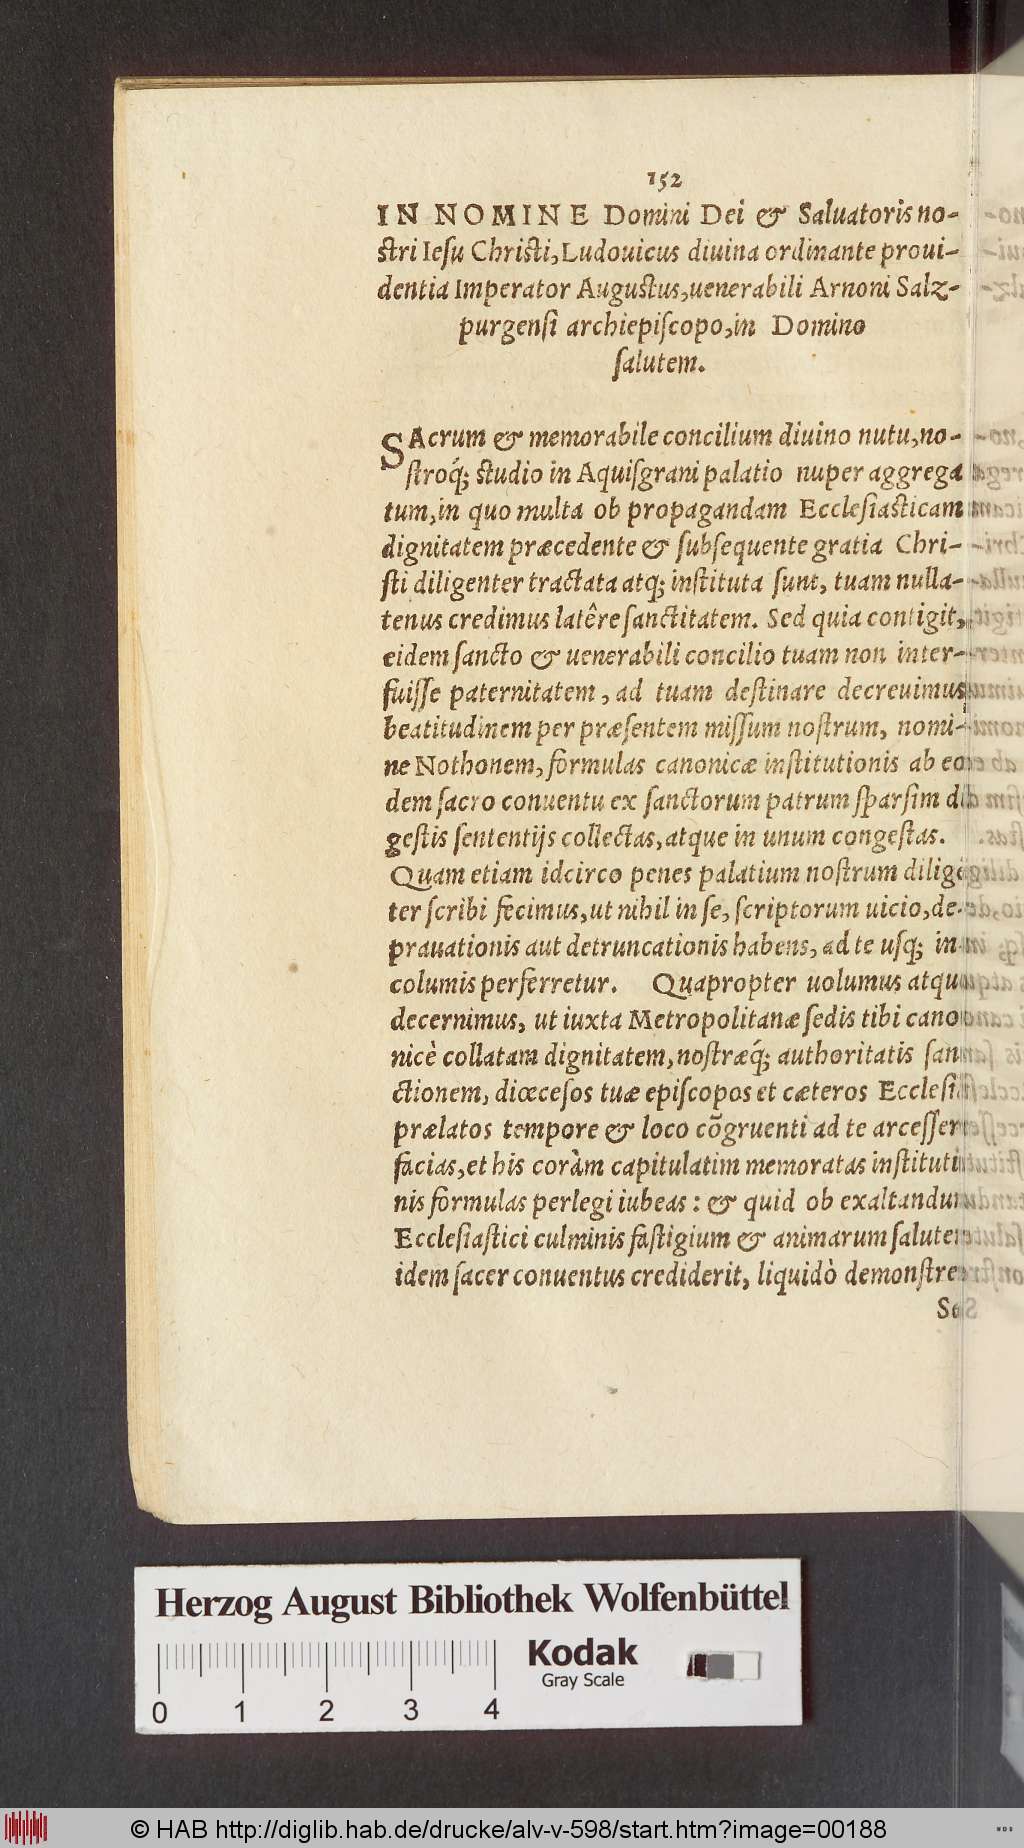 152
IN NOMINE Domini Dei & Saluatoris no-
stri Iesu Christi, Ludouicus diuina ordinante proui-
dentia Imperator Augustus, uenerabili Arnoni Salz-
purgensi archiepiscopo, in Domino
salutem.
SAcrum & memorabile concilium diuino nutu, no-
stroq́; studio in Aquisgrani palatio nuper aggrega
tum, in quo multa ob propagandam Ecclesiasticam
dignitatem præcedente & subsequente gratia Chri-
sti diligenter tractata atq; instituta sunt, tuam nulla-
tenus credimus latêre sanctitatem. Sed quia contigit,
eidem sancto & uenerabili concilio tuam non inter-
fuisse paternitatem, ad tuam destinare decreuimus
beatitudinem per præsentem missum nostrum, nomi-
ne Nothonem, formulas canonicæ institutionis ab eo
dem sacro conuentu ex sanctorum patrum sparsim di
gestis sententijs collectas, atque in unum congestas.
Quam etiam idcirco penes palatium nostrum diligẽ
ter scribi fecimus, ut nihil in se, scriptorum uicio, de-
prauationis aut detruncationis habens, ad te usq; in
columis perferretur. Quapropter uolumus atque
decernimus, ut iuxta Metropolitanæ sedis tibi cano
nicè collatam dignitatem, nostræq́; authoritatis san
ctionem, diœcesos tuæ episcopos et cæteros Ecclesiæ
prælatos tempore & loco cõgruenti ad te arcessere
facias, et his coràm capitulatim memoratas institutio
nis formulas perlegi iubeas: & quid ob exaltandum
Ecclesiastici culminis fastigium & animarum salutem
idem sacer conuentus crediderit, liquidò demonstres
Sed
Herzog August Bibliothek Wolfenbüttel
Kodak
Gray Scale
0 1 2 3 4
© HAB http://diglib.hab.de/drucke/alv-v-598/start.htm?image=00188